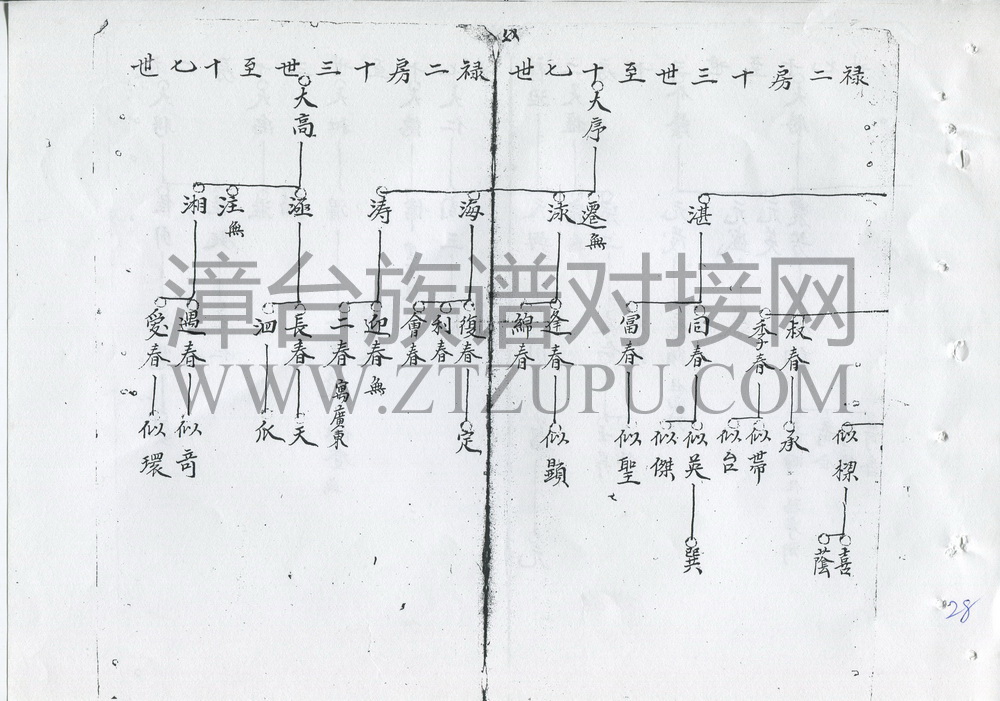 禄二房十三世至十七世
大序
湛
遷 無
泳
海
涛
叔春
季春
同春
富春
逢春
綿春
復春
利春
會春
迎春 無
二春 寓廣東
似樑
承
似帶
似台
似英
似傑
似聖
似顯
定
喜
蔭
巽
禄二房十三世至十七世
大高
湎
長春
泗
遇春
愛春
天
爪
似奇
似環
漳台族谱对接网
WWW.ZTZUPU.COM
28